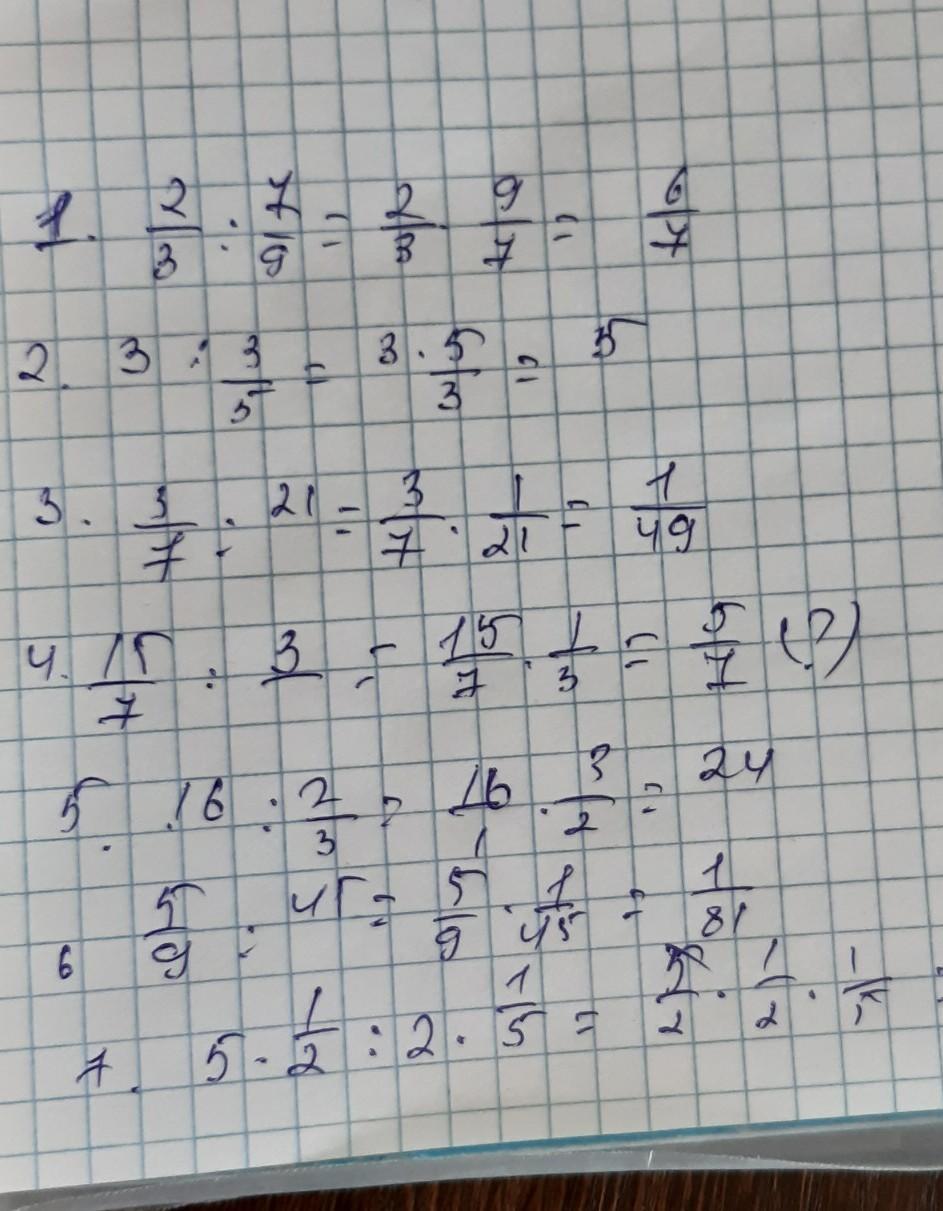 1. 2/3 : 7/9 = 2/3 · 9/7 = 6/7
2. 3 : 3/5 = 3 · 5/3 = 5
3. 3/7 : 21 = 3/7 · 1/21 = 1/49
4. 15/7 : 3/ = 15/7 · 1/3 = 5/7 (?)
5. 16 : 2/3 = 16/1 · 3/2 = 24
6 5/9 : 45 = 5/9 · 1/45 = 1/81
7. 5 · 1/2 : 2 · 1/5 = 5/2 · 1/2 · 1/5 =